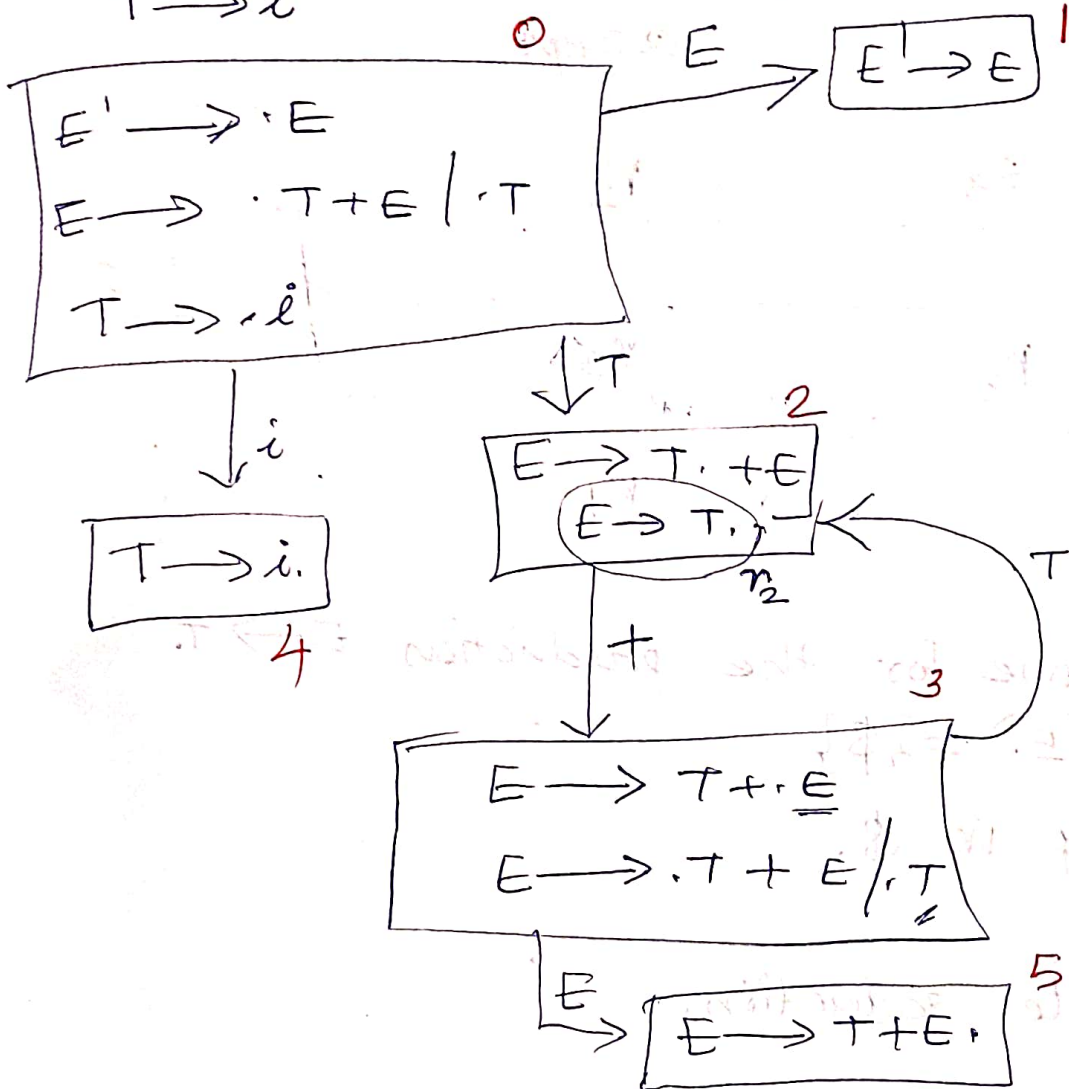 T → i
0
E' → ·E
E → ·T+E / ·T
T → ·i
E
E' → E
1
i
T
T → i.
4
2
E → T. +E
E → T.
r2
+
T
3
E → T+.E
E → .T + E / .T
E
E → T+E.
5